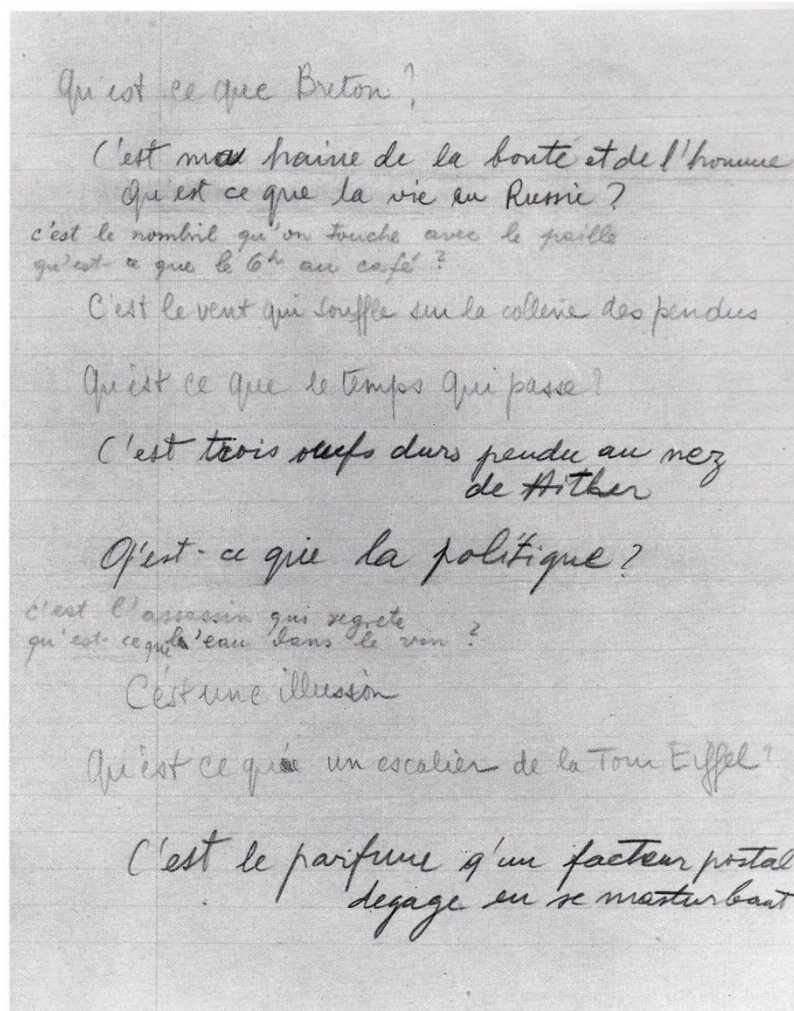 Qu'est ce que Breton?
C'est ma haine de la bonté et de l'homme
Qu'est ce que la vie en Russie ?
c'est le nombril qu'on touche avec le paille
qu'est-ce que le 6h au café ?
C'est le vent qui souffle sur la colline des pendus
Qu'est ce que le temps qui passe?
C'est trois œufs durs pendu au nez
de Hitler
Q'est-ce que la politique ?
c'est l'assassin qui regrete
qu'est-ce que l'eau dans le vin ?
C'est une illusion
Qu'est ce que un escalier de la Tour Eiffel?
C'est le parfume q'un facteur postal
degage en se masturbant